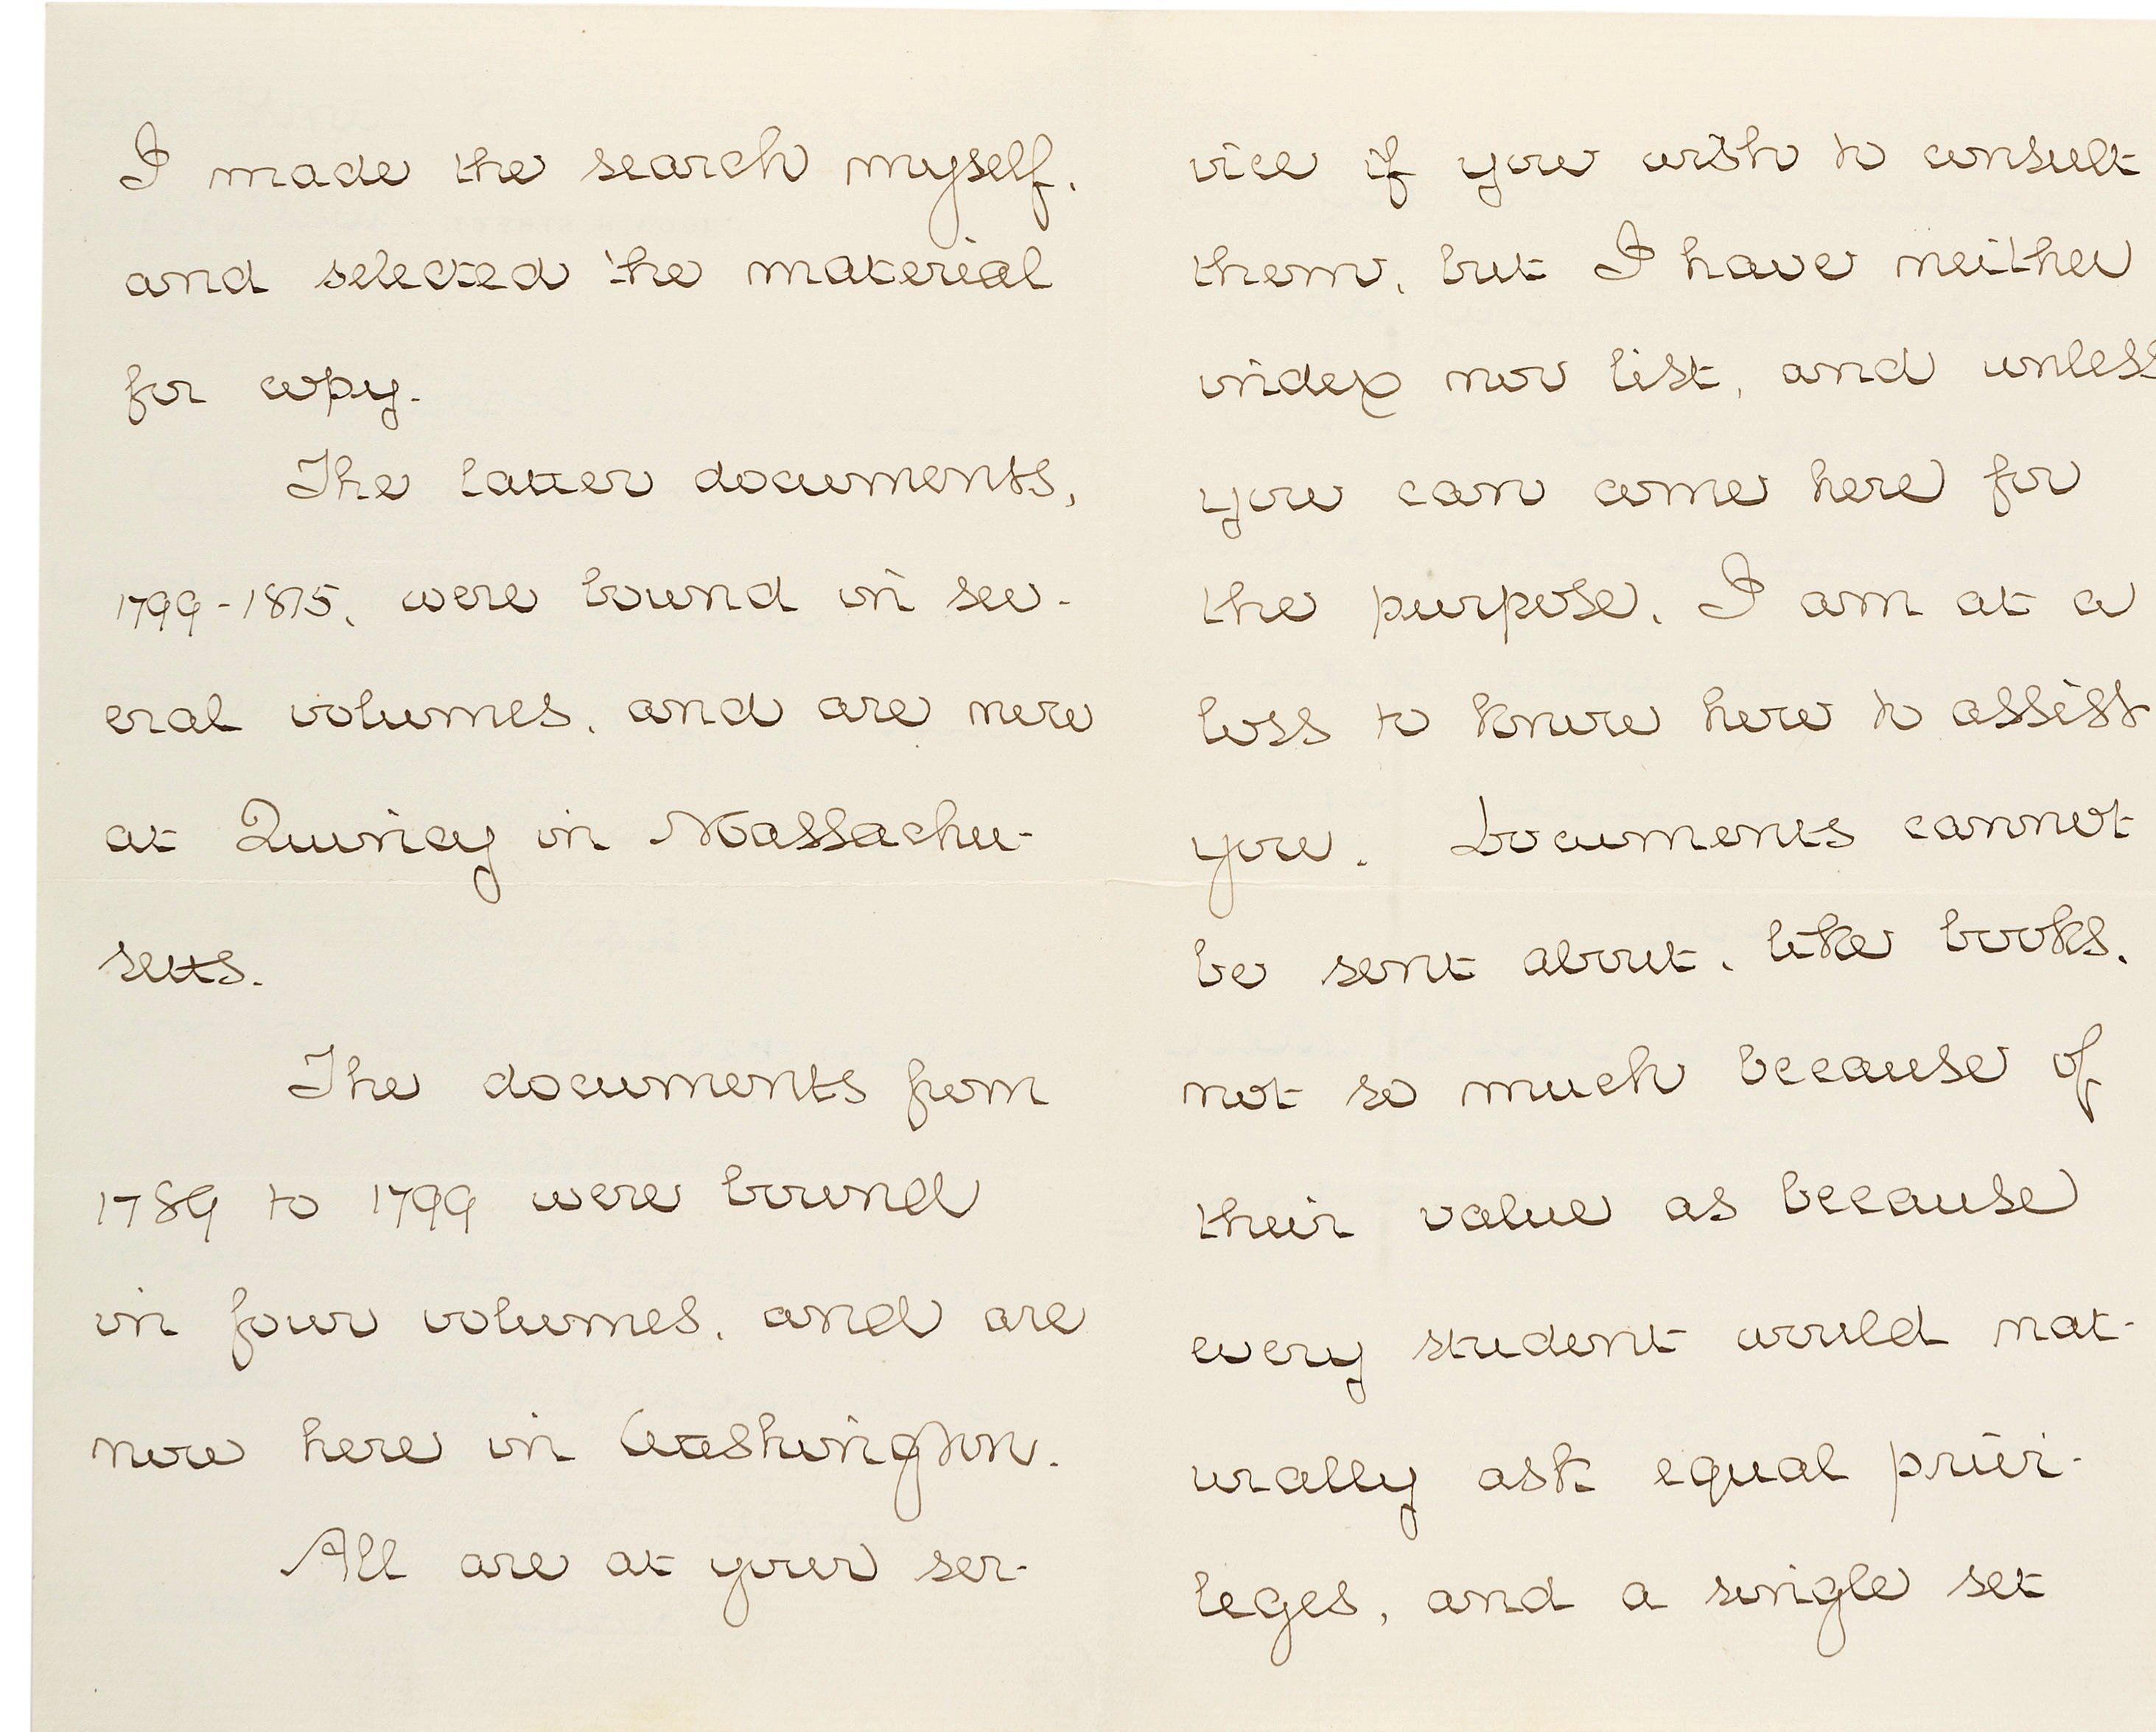 I made the search myself,
and selected the material
for copy.
The latter documents,
1799-1815, were bound in sev-
eral volumes, and are now
at Quincy in Massachu-
setts.
The documents from
1789 to 1799 were bound
in four volumes, and are
now here in Washington.
All are at your ser-
vice if you wish to consult
them, but I have neither
index nor list, and unless
you can come here for
the purpose, I am at a
loss to know how to assist
you. Documents cannot
be sent about, like books,
not so much because of
their value as because
every student would nat-
urally ask equal privi-
leges, and a single set